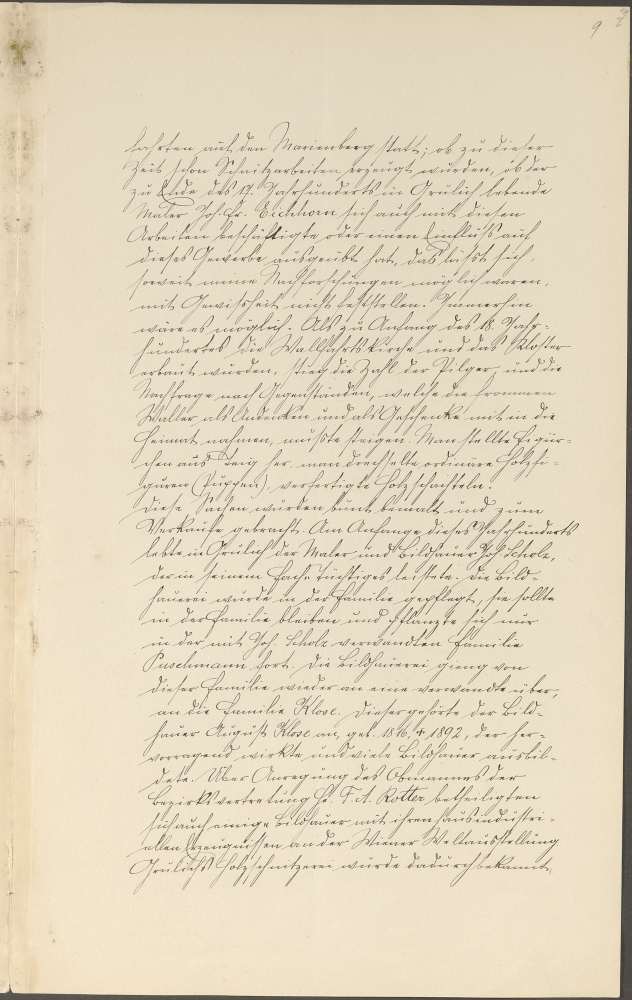 9 7
fahrten auf den Marienberg statt; ob zu dieser
Zeit schon Schnitzarbeiten erzeugt wurden, ob der
zu Ende des 17. Jahrhunderts in Grulich lebende
Maler Joh. Fr. Eichhorn sich auch mit diesen
Arbeiten beschäftigte oder einen Einfluss auf
dieses Gewerbe ausgeübt hat, das läßt sich,
soweit meine Nachforschungen möglich waren,
mit Gewissheit nicht feststellen. Immerhin
wäre es möglich. Als zu Anfang des 18. Jahr-
hundertes die Wallfahrtskirche und das Kloster
erbaut wurden, stieg die Zahl der Pilger und die
Nachfrage nach Gegenständen, welche die frommen
Waller als Andenken und als Geschenke mit in die
Heimat nahmen, mußte steigen. Man stellte Figür-
chen aus Teig her, man drechselte ordinäre Holzfi-
guren (Puppen), verfertigte Holzschachteln.
Diese Sachen wurden bunt bemalt und zum
Verkaufe gebracht. Am Anfange dieses Jahrhunderts
lebte in Grulich der Maler und Bildhauer Joh. Scholz,
der in seinem Fache Tüchtiges leistete. Die Bild-
hauerei wurde in der Familie gepflegt, sie sollte
in der Familie bleiben und pflanzte sich nur
in der mit Joh. Scholz verwandten Familie
Puschmann fort. Die Bildhauerei gieng von
dieser Familie wieder an eine verwandte über,
an die Familie Klose. Dieser gehörte der Bild-
hauer August Klose an, geb. 1816, † 1892, der her-
vorragend wirkte und viele Bildhauer ausbil-
dete. Über Anregung des Obmannes der
Bezirksvertretung H. F. A. Rotter betheiligten
sich auch einige Bildhauer mit ihren hausindustri-
ellen Erzeugnissen an der Wiener Weltausstellung
Grulichs Holzschnitzerei wurde dadurch bekannt,